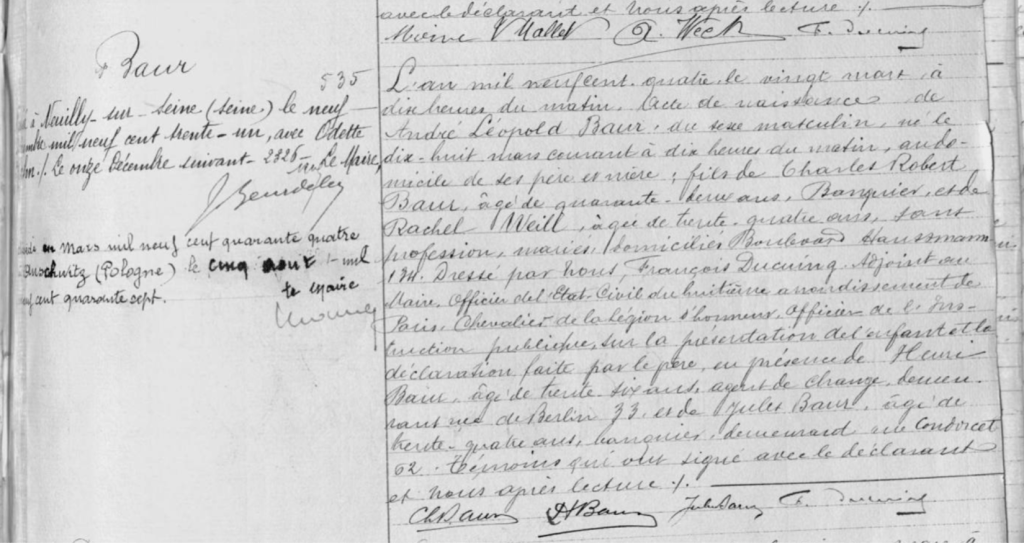 avec le déclarant et nous après lecture ./.
Moine V Mallet A. Weck F. Ducuing
Baur
535
à Neuilly-sur-Seine (Seine) le neuf
mil neuf cent trente-un, avec Odette
./. Le onze Décembre suivant - 2326 Le Maire,
en Mars mil neuf cent quarante quatre
(Pologne) le cinq aout mil
cent quarante sept. le Maire
L'an mil neuf cent quatre, le vingt mars, à
dix heures du matin. Acte de naissance de
André Léopold Baur, du sexe masculin, né le
dix-huit mars courant à dix heures du matin, au do-
micile de ses père et mère ; fils de Charles Robert
Baur, âgé de quarante-deux ans, Banquier, et de
Rachel Weill, âgée de trente-quatre ans, sans
profession, mariés, domiciliés Boulevard Haussmann
134. Dressé par nous, François Ducuing Adjoint au
Maire, Officier de l'Etat-Civil du huitième arrondissement de
Paris, Chevalier de la légion d'honneur, Officier de l'Ins-
truction publique, sur la présentation de l'enfant et la
déclaration faite par le père, en présence de Henri
Baur, âgé de trente-six ans, agent de change, demeu-
rant rue de Berlin 33, et de Jules Baur, âgé de
trente-quatre ans, banquier, demeurant rue Condorcet
62. Témoins qui ont signé avec le déclarant
et nous après lecture ./.
Ch Baur H Baur Jules Baur F. Ducuing